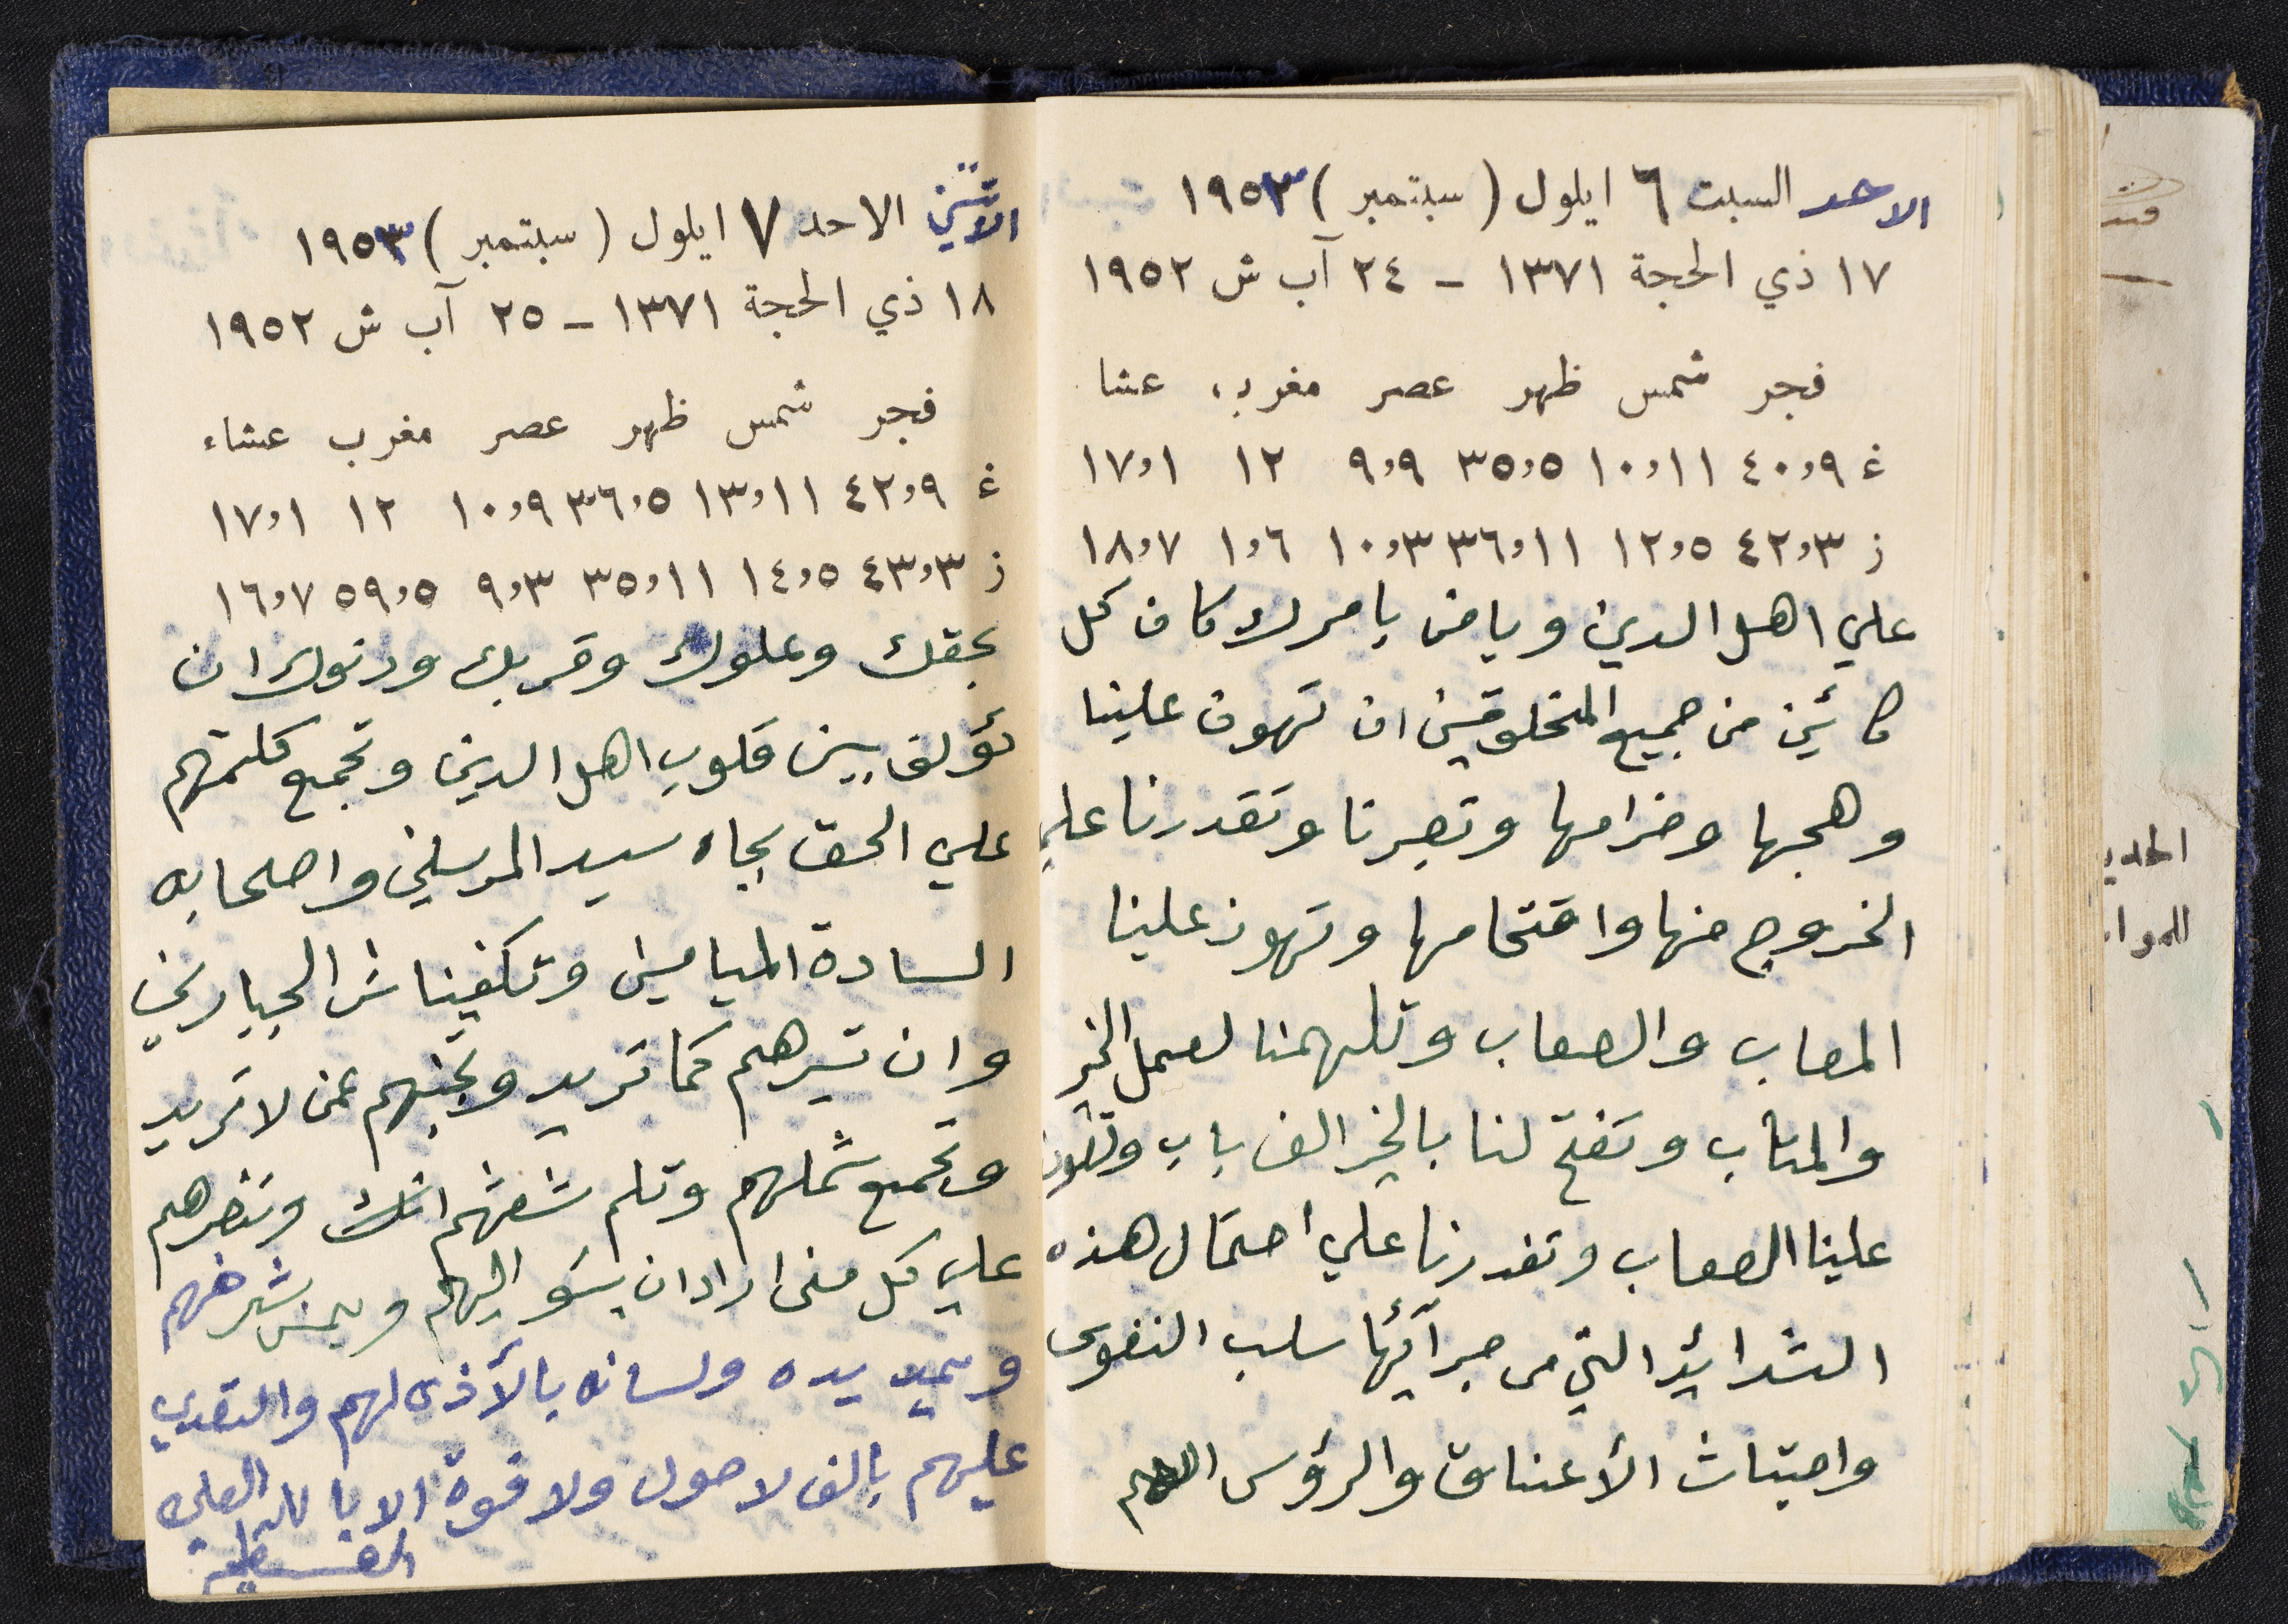 الاحد السبت ٦ ايلول ( سبتمبر ) ١٩٥٣
١٧ ذي الحجة ١٣٧١ - ٢٤ آب ش ١٩٥٢
فجر شمس ظهر عصر مغرب عشا
غ ٤٠،٩ ١٠،١١ ٣٥،٥ ٩،٩ ١٢ ١٧،١
ز ٤٢،٣ ١٢،٥ ٣٦،١١ ١٠،٣ ١،٦ ١٨،٧
علي اهل الدين ويا من يامرك كان كل
كائن من جميع المخلوقين ان تهون علينا
وهجها وضرامها وتصبرنا وتقدرنا علي
الخروج منها واقتحامها وتهون علينا
المصاب والصعاب وتلهمنا لعمل الخير
والمتاب وتفتح لنا بالخير الف باب وتهون
علينا الصعاب وتقدرنا علي احتمال هذه
الشدايد التي من جرآئها سلب النفوس
واجتثاث الأعناق والرؤس اللهم
الاثنين الاحد ٧ ايلول ( سبتمبر ) ١٩٥٣
١٨ ذي الحجة ١٣٧١ - ٢٥ آب ش ١٩٥٢
فجر شمس ظهر عصر مغرب عشاء
غ ٤٢،٩ ١٣،١١ ٣٦،٥ ١٠،٩ ١٢ ١٧،١
ز ٤٣،٣ ١٤،٥ ٣٥،١١ ٩،٣ ٥٩،٥ ١٦،٧
بحقك وعلوك وقربك ودنوك ان
تؤلف بين قلوب اهل الدين وتجمع كلمتهم
علي الحق بجاه سيد المرسلين واصحابه
السادة الميامين وتكفينا شر الجبارين
وان تسيرهم كما تريد وتجنبهم عمن لا تريد
وتجمع شملهم وتلم شعثهم انك وتنصرهم
علي كل من اراد ان يسؤ اليهم ويمس شرفهم
ويمد يده ولسانه بالأذى لهم والتعدي
عليهم بالف لا حول ولا قوة الا بالله العلي
العظيم
الحديـ
للموا